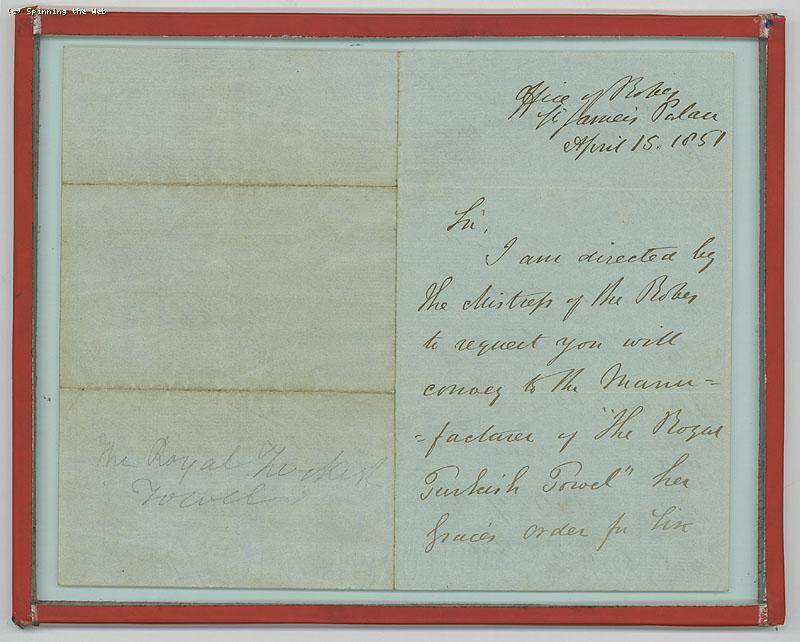 (c) Spinning the Web
Office of Robes
St James's Palace
April 15. 1851
Sir,
I am directed by
the Mistress of the Robes
to request you will
convey to the Manu=
=facturer of "The Royal
Turkish Towel" her
Grace's order for Six
The Royal Turkish
Towel